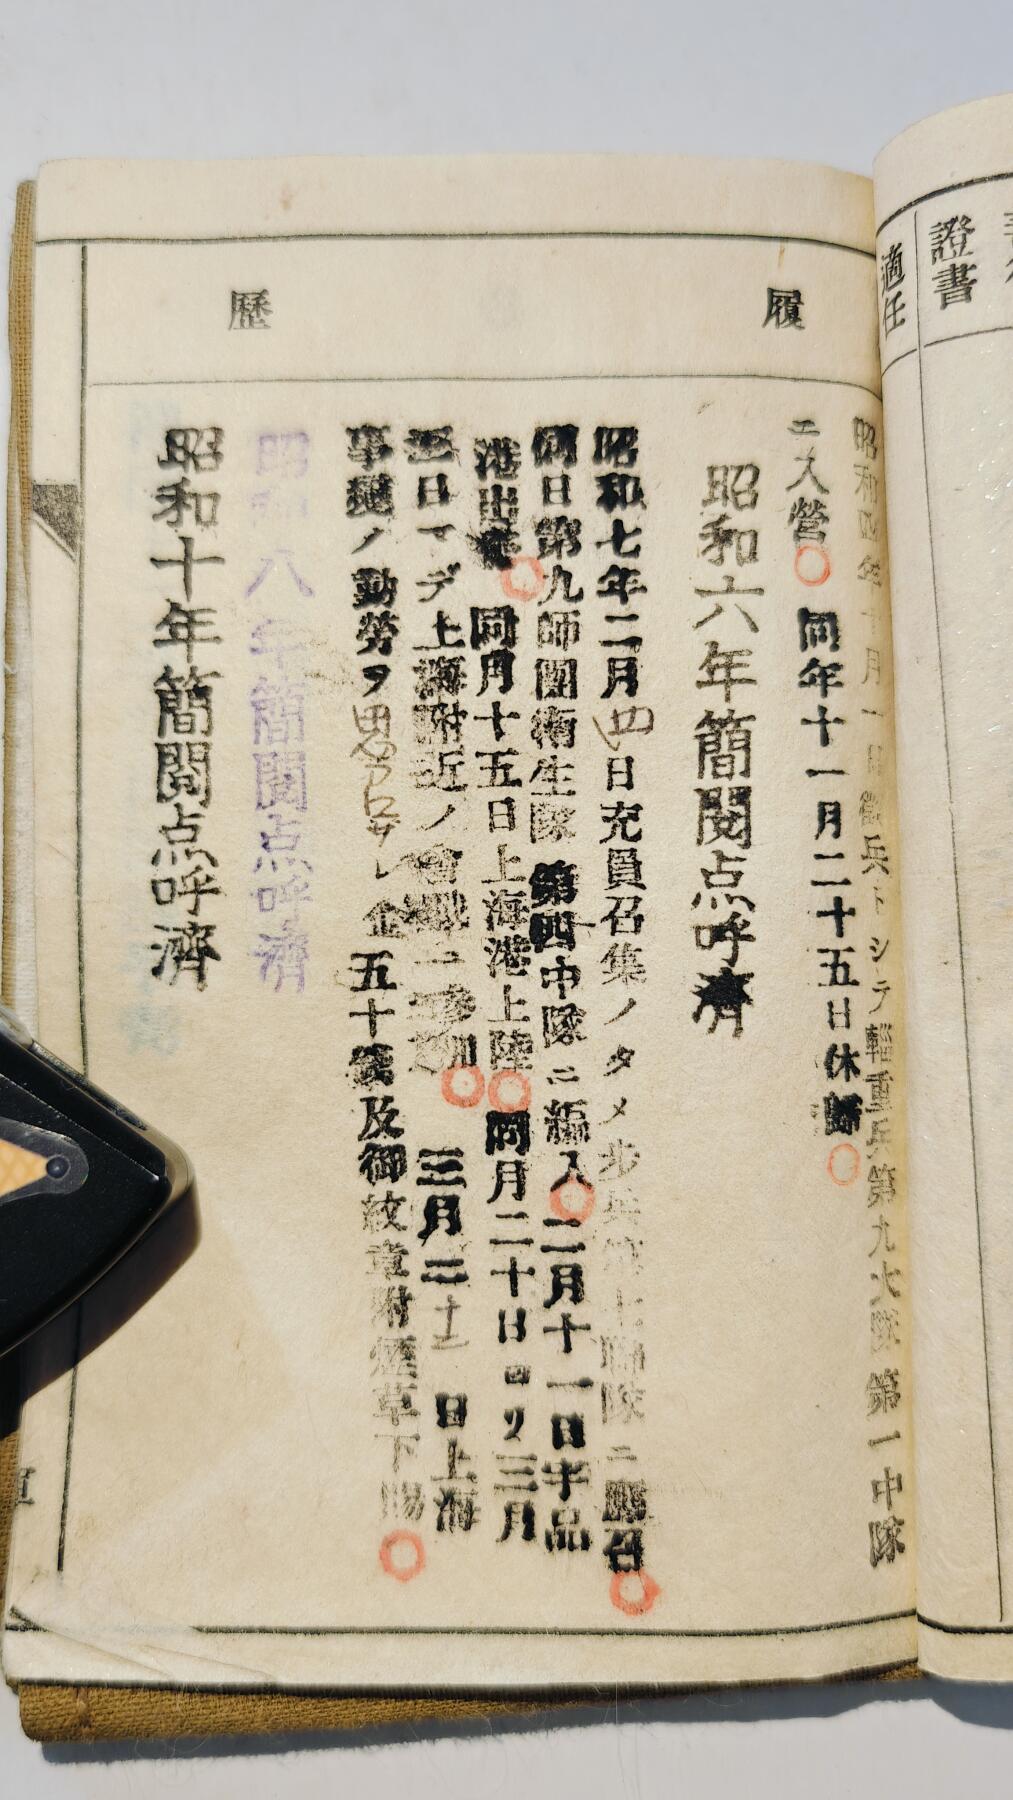 證書
適任
履歷
昭和四年十一月一日徵兵トシテ輜重兵第九大隊第一中隊
ニ入營 同年十一月二十五日休歸
昭和六年簡閱点呼濟
昭和七年二月四日充員召集ノタメ步兵第七聯隊ニ應召
同日第九師團衛生隊第四中隊ニ編入 二月十一日宇品
港出帆 同月十五日上海港上陸 同月二十日ヨリ三月
三日マデ上海附近ノ會戰ニ參加 三月二十二日上海
事變ノ勤勞ヲ思召サレ金五十錢及御紋章附煙草下賜
昭和八年簡閱点呼濟
昭和十年簡閱点呼濟